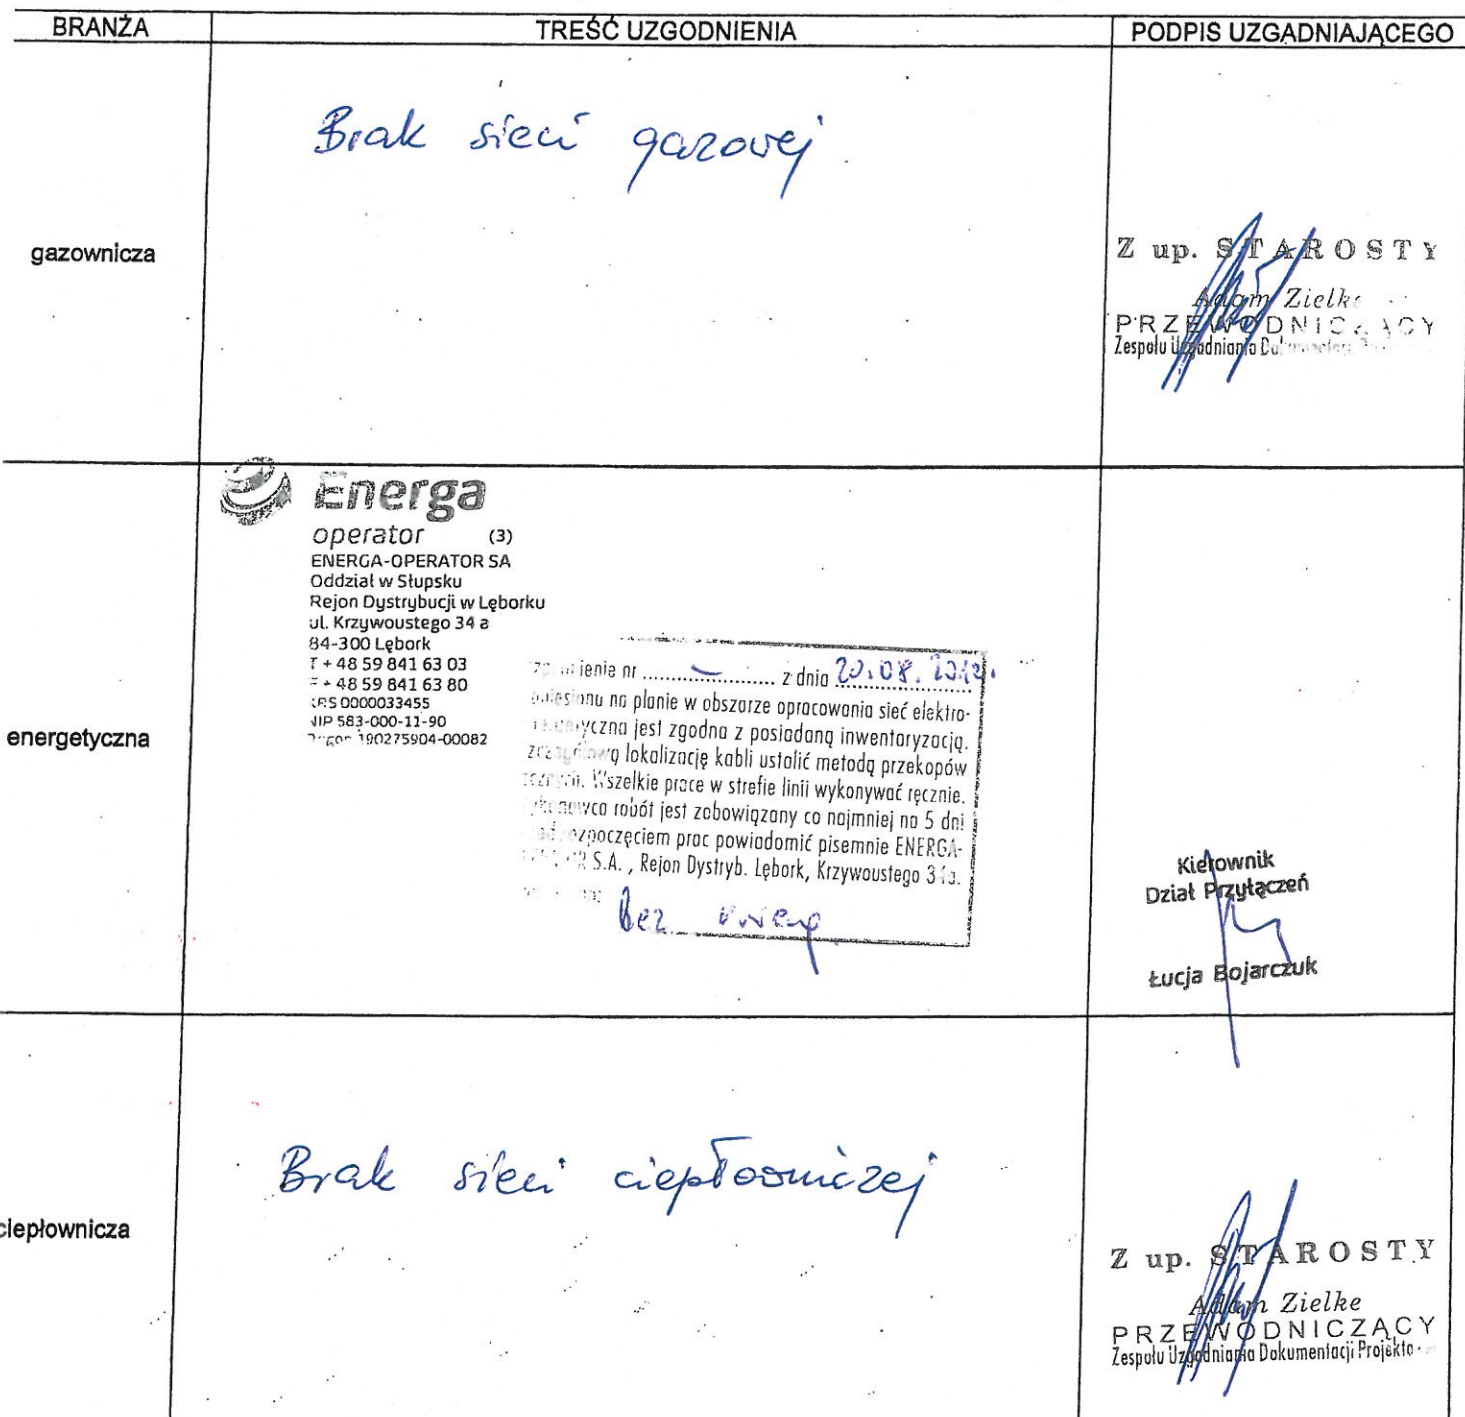 BRANŻA
TREŚĆ UZGODNIENIA
PODPIS UZGADNIAJĄCEGO
gazownicza
Brak sieci gazowej
Z up. STAROSTY
Adam Zielke
PRZEWODNICZĄCY
Zespołu Uzgadniania
energetyczna
Energa
operator (3)
ENERGA-OPERATOR SA
Oddział w Słupsku
Rejon Dystrybucji w Lęborku
ul. Krzywoustego 34 a
84-300 Lębork
T + 48 59 841 63 03
+ 48 59 841 63 80
KRS 0000033455
NIP 583-000-11-90
190275904-00082
ienie nr ........ z dnia 20.08.
na planie w obszarze opracowania sieć elektro-
yczna jest zgodna z posiadaną inwentaryzacją.
lokalizację kabli ustalić metodą przekopów
Wszelkie prace w strefie linii wykonywać ręcznie.
robót jest zobowiązany co najmniej na 5 dni
rozpoczęciem prac powiadomić pisemnie ENERGA-
S.A. , Rejon Dystryb. Lębork, Krzywoustego 34a.
Bez uwag
Kierownik
Dział Przyłączeń
Łucja Bojarczuk
ciepłownicza
Brak sieci ciepłowniczej
Z up. STAROSTY
Adam Zielke
PRZEWODNICZĄCY
Zespołu Uzgadniania Dokumentacji Projekto